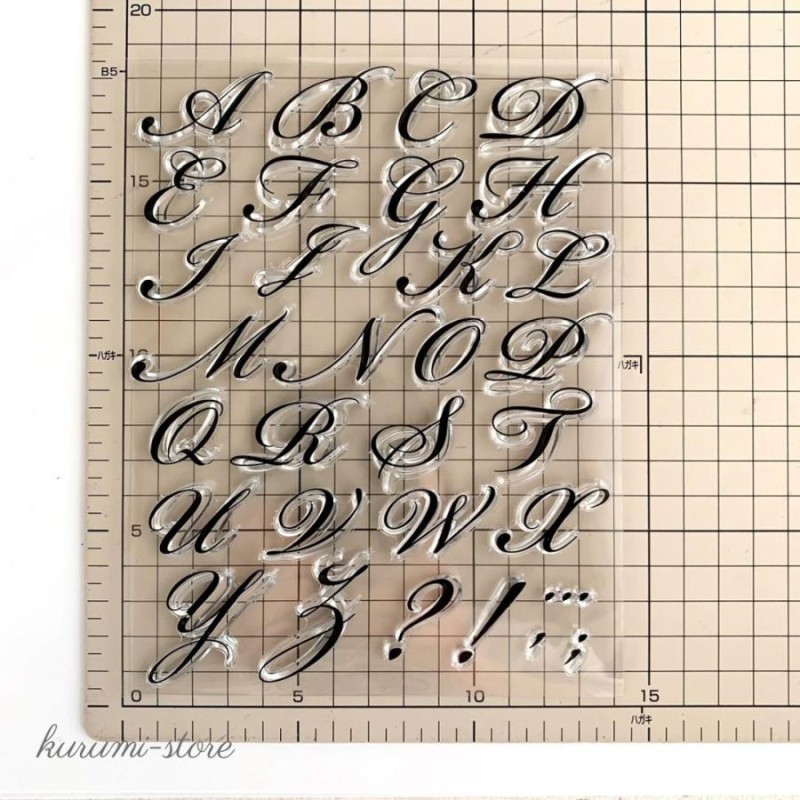 20
B5
A B C D
15
E F G H
I J K L
ハガキ 10 ハガキ
M N O P
Q R S T
5
U V W X
Y Z ? ! ... , ;
0 5 10 15
ハガキ
kurumi-store